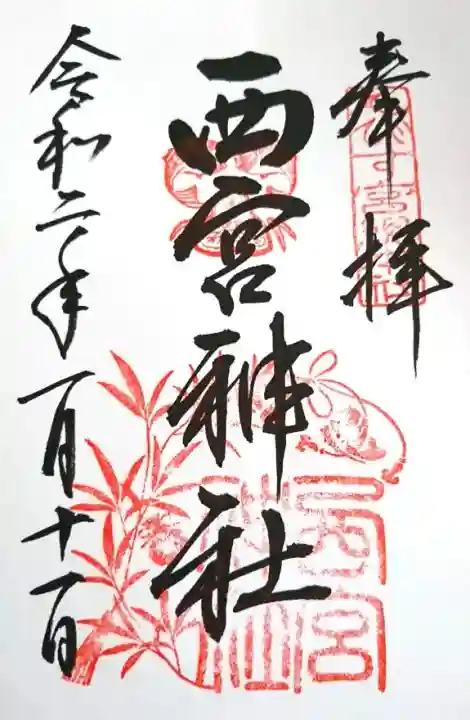 奉拝
西宮神社
令和二年一月十一日